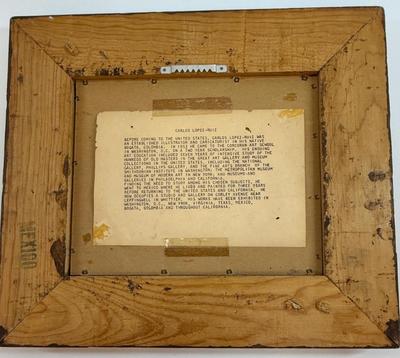 CARLOS LOPEZ-RUIZ
BEFORE COMING TO THE UNITED STATES, CARLOS LOPEZ-RUIZ WAS
AN ESTABLISHED ILLUSTRATOR AND CARICATURIST IN HIS NATIVE
BOGATA, COLOMBIA. IN 1953 HE CAME TO THE CORCORAN ART SCHOOL
IN WASHINGTON, D.C. ON A TWO YEAR SCHOLARSHIP. HIS ENSUING
ART EDUCATION INCLUDED SEVEN YEARS OF INTENSIVE STUDY OF THE
HUNDREDS OF OLD MASTERS IN THE GREAT ART GALLERY AND MUSEUM
COLLECTIONS IN THE UNITED STATES, INCLUDING THE NATIONAL
GALLERY, PHILLIPS GALLERY, AND THE FINE ARTS BRANCH OF THE
SMITHSONIAN INSTITUTE IN WASHINGTON, THE METROPOLITAN MUSEUM
AND MUSEUM OF MODERN ART IN NEW YORK, AND MUSEUMS AND
GALLERIES IN PHILADELPHIA AND CALIFORNIA.
HAVING THE NEED TO STUDY AMONG HIS CHOSEN SUBJECTS, HE
WENT TO MEXICO WHERE HE LIVED AND PAINTED FOR THREE YEARS
BEFORE RETURNING TO THE UNITED STATES AND CALIFORNIA. HE
NOW OCCUPIES A STUDIO AND GALLERY ON GREENLEAF AVENUE NEAR
WHITTIER. HIS WORKS HAVE BEEN EXHIBITED IN
WASHINGTON, D.C., NEW YORK, VIRGINIA, TEXAS, MEXICO,
BOGATA, COLOMBIA AND THROUGHOUT CALIFORNIA.
MEXICO